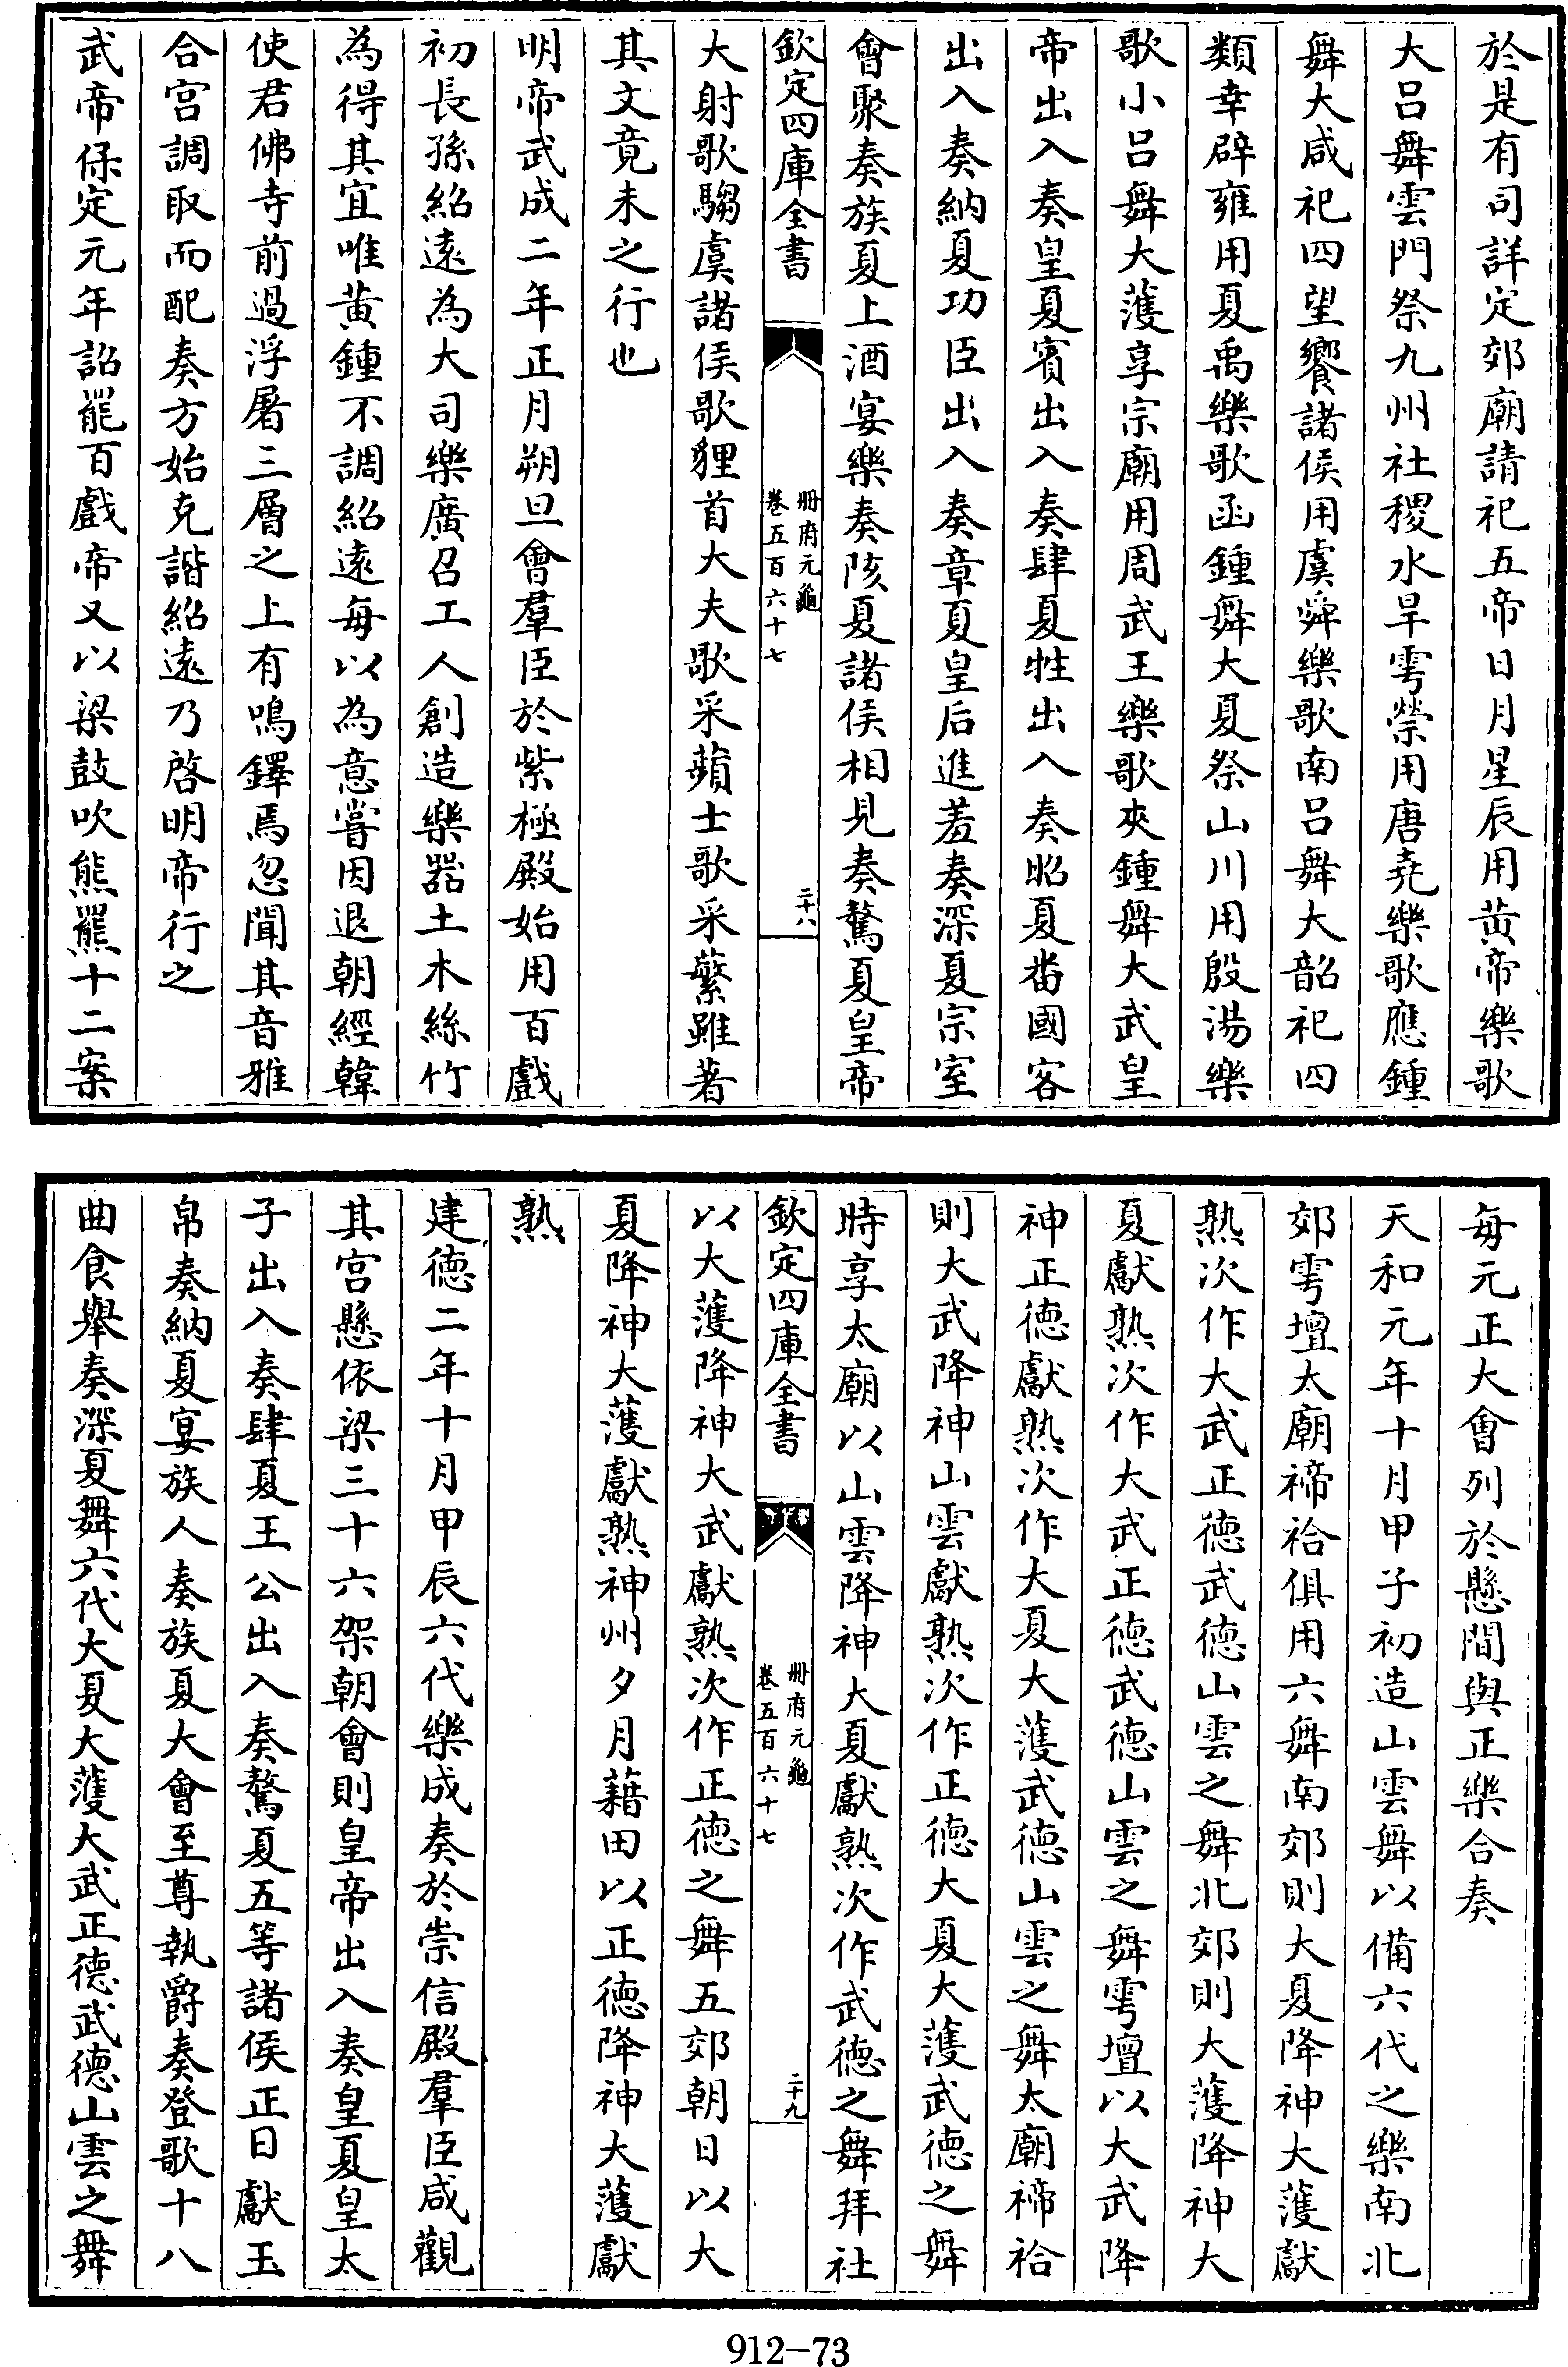 於是有司詳定郊廟請祀五帝日月星辰用黃帝樂歌
大呂舞雲門祭九州社稷水旱雩禜用唐堯樂歌應鍾
舞大咸祀四望饗諸侯用虞舜樂歌南呂舞大韶祀四
類幸辟雍用夏禹樂歌函鍾舞大夏祭山川用殷湯樂
歌小呂舞大濩享宗廟用周武王樂歌夾鍾舞大武皇
帝出入奏皇夏賓出入奏肆夏牲出入奏昭夏蕃國客
出入奏納夏功臣出入奏章夏皇后進羞奏深夏宗室
會聚奏族夏上酒宴樂奏陔夏諸侯相見奏驁夏皇帝
欽定四庫全書
冊府元龜
卷五百六十七
二十八
大射歌騶虞諸侯歌貍首大夫歌采蘋士歌采蘩雖著
其文竟未之行也
明帝武成二年正月朔旦會羣臣於紫極殿始用百戲
初長孫紹遠為大司樂廣召工人創造樂器土木絲竹
為得其宜唯黃鍾不調紹遠每以為意嘗因退朝經韓
使君佛寺前過浮屠三層之上有鳴鐸焉忽聞其音雅
合宮調取而配奏方始克諧紹遠乃啓明帝行之
武帝保定元年詔罷百戲帝又以梁鼓吹熊羆十二案
每元正大會列於懸間與正樂合奏
天和元年十月甲子初造山雲舞以備六代之樂南北
郊雩壇太廟禘祫俱用六舞南郊則大夏降神大濩獻
熟次作大武正德武德山雲之舞北郊則大濩降神大
夏獻熟次作大武正德武德山雲之舞雩壇以大武降
神正德獻熟次作大夏大濩武德山雲之舞太廟禘祫
則大武降神山雲獻熟次作正德大夏大濩武德之舞
時享太廟以山雲降神大夏獻熟次作武德之舞拜社
欽定四庫全書
冊府元龜
卷五百六十七
二十九
以大濩降神大武獻熟次作正德之舞五郊朝日以大
夏降神大濩獻熟神州夕月藉田以正德降神大濩獻
熟
建德二年十月甲辰六代樂成奏於崇信殿羣臣咸觀
其宮懸依梁三十六架朝會則皇帝出入奏皇夏皇太
子出入奏肆夏王公出入奏驁夏五等諸侯正日獻玉
帛奏納夏宴族人奏族夏大會至尊執爵奏登歌十八
曲食舉奏深夏舞六代大夏大濩大武正德武德山雲之舞
912-73